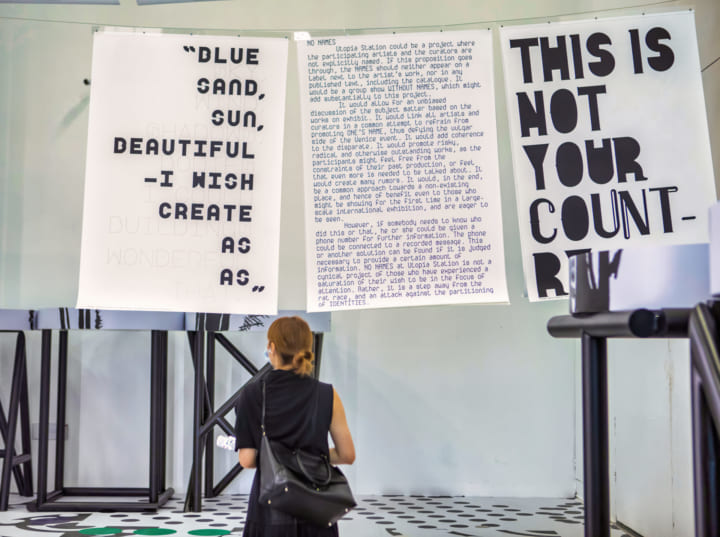 “DLUE
SAND,
SUN,
DEAUTIFUL
-I WISH
CREATE
AS
AS„
NO NAMES
Utopia Station could be a project where
the participating artists and the curators are
not explicitly named. IF this proposition goes
through, the NAMES should neither appear on a
label next to the artist's work, nor in any
published text, including the catalogue. It
would be a group show WITHOUT NAMES, which might
add substantially to this project.
It would allow for an unbiased
discussion of the subject matter based on the
works on exhibit. It would link all artists and
curators in a common attempt to refrain from
promoting ONE'S NAME, thus defying the vulgar
side of the Venice event. It would add coherence
to the disparate. It would promote risky,
radical and otherwise outstanding works, as the
participants might feel free from the
constraints of their past production, or feel
that even more is needed to be talked about. It
would create many rumors. It would, in the end,
be a common approach towards a non-existing
place, and hence of benefit even to those who
might be showing for the first time in a large-
scale international exhibition, and are eager to
be seen.
However, if somebody needs to know who
did this or that, he or she could be given a
phone number for further information. The phone
could be connected to a recorded message. This
or another solution can be found if it is judged
necessary to provide a certain amount of
information. NO NAMES at Utopia Station is not a
cynical project of those who have experienced a
saturation of their wish to be in the focus of
attention. Rather, it is a step away from the
rat race, and an attack against the partitioning
of IDENTITIES.
THIS IS
NOT
YOUR
COUNT-